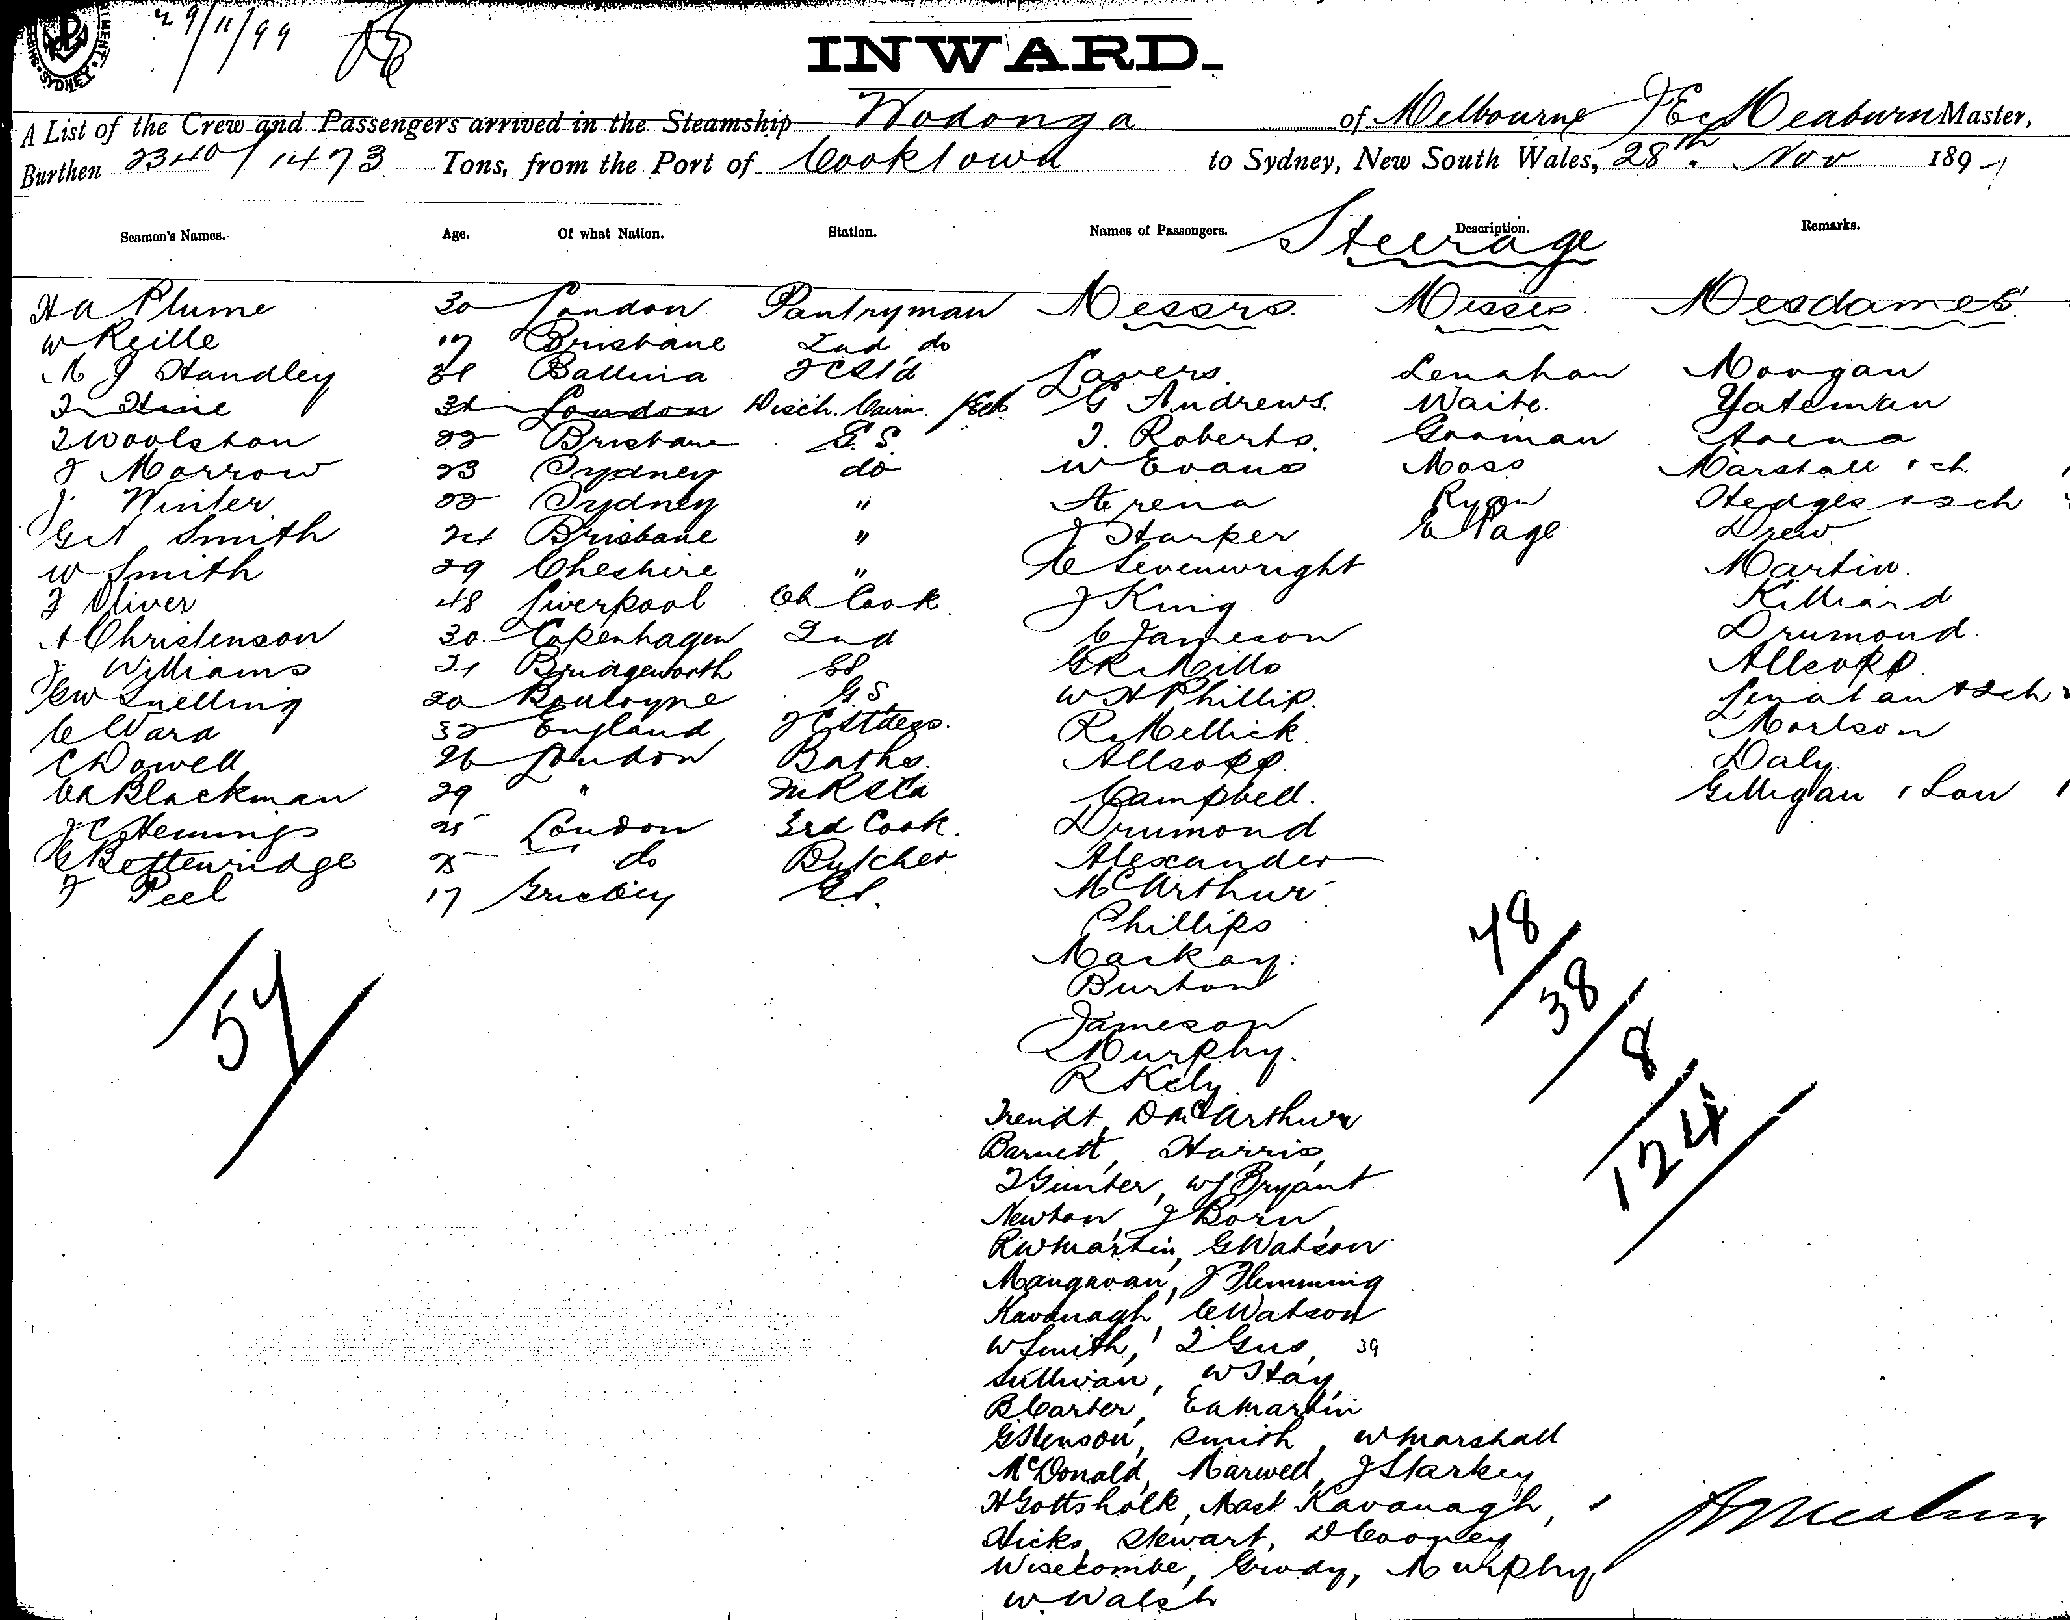 29/11/99
INWARD.
A List of the Crew and Passengers arrived in the Steamship Wodonga of Melbourne Meaburn Master,
Burthen 2340/1473 Tons, from the Port of Cooktown to Sydney, New South Wales, 28th. Nov 189
Seamen's Names. Age. Of what Nation. Station. Names of Passengers. Description. Remarks.
Steerage
H A Plume 30 London Pantryman Messrs. Misses Mesdames
W Reille 19 Brisbane 2nd do
M J Handley Ballina Lavers. Lenahan Morgan
Hine London Disch. G Andrews. Waite. Yateman
Woolston 22 Brisbane G.S. J. Roberts. Gooman Arena
J Morrow 23 Sydney do W Evans Moss Marshall & ch
J. Winter 22 Sydney " Arena Ryan Hedges & ch
Smith 24 Brisbane " J Harper E Page Drew
W Smith 29 Cheshire " C Sevenwright Martin.
J Oliver 48 Liverpool Ch Cook J King Killiard
A Christenson 30 Copenhagen 2nd C Jameson Drumond.
J Williams 21 Bridgeworth G R Mills Allsopp.
G W Snelling 20 Boulogne G.S. W H Phillip.
C Ward 32 England R. Mellick. Morlson
C Dowell 26 London Baths. Allsopp. Daly
Blackman 29 " Campbell. Gilligan
J C Hemmings 25 London 3rd Cook. Drumond
Bettenridge 25 do Butcher Alexander
J Peel 17 McArthur
Phillips
Mackay.
Burton
Jameson
Murphy.
R Kely
54
48
38
8
124
Trendt, D McArthur
Barnett, Harris,
J Gunter, W J Bryant
Newton, J Born,
R W Martin, G Watson
Mangavan, J Flemming
Kavanagh, C Watson
W Smith, J Gus, 39
Sullivan, W Hay,
B Carter, E A Martin
G Stenson, Smith, W Marshall
McDonald, Marwell, J Starkey
H Gottsholk, Mast Kavanagh,
Hicks, Stewart, D Cooney
Wisecombe, Grudy, Murphy,
W. Walsh